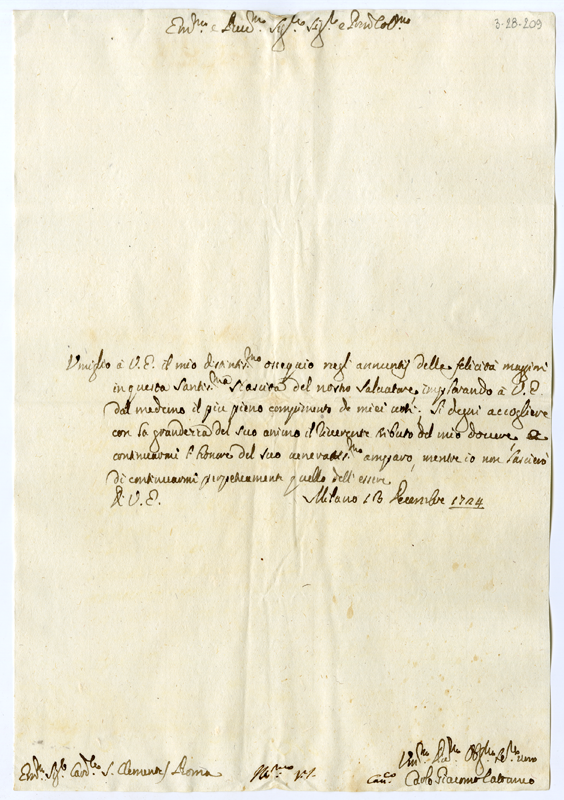 3-28-209
Em.mo e Rev.mo Sig.re Sig.re e Pron Col.mo
Umiglio à V.E. il mio distintiss.mo ossequio negli annuntij delle felicità maggiori
in questa Santiss.ma Nascita del nostro Salvatore implorando à V.E.
dal medemo il piu pieno compimento de miei voti. Si degni accogliere
con la grandezza del suo animo il riverente tributo del mio dovere e
continuarmi l'honore del suo veneratiss.mo amparo, mentre io non lascierò
di continuarmi perpetuamente quello dell'essere
Di V.E. Milano 13 Decembre 1724
Em.mo Sig.re Card.le S. Clemente / Roma
Um.mo De.mo Obl.mo Ser.re vero
Can.co Carlo Giacomo Cattaneo